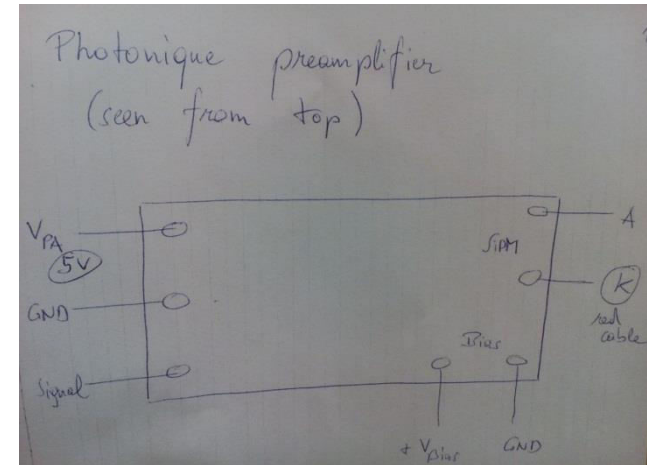 Photonique preamplifier
(seen from top)
V_PA
5V
GND
Signal
A
SiPM
K
red
cable
Bias
+ V_Bias
GND